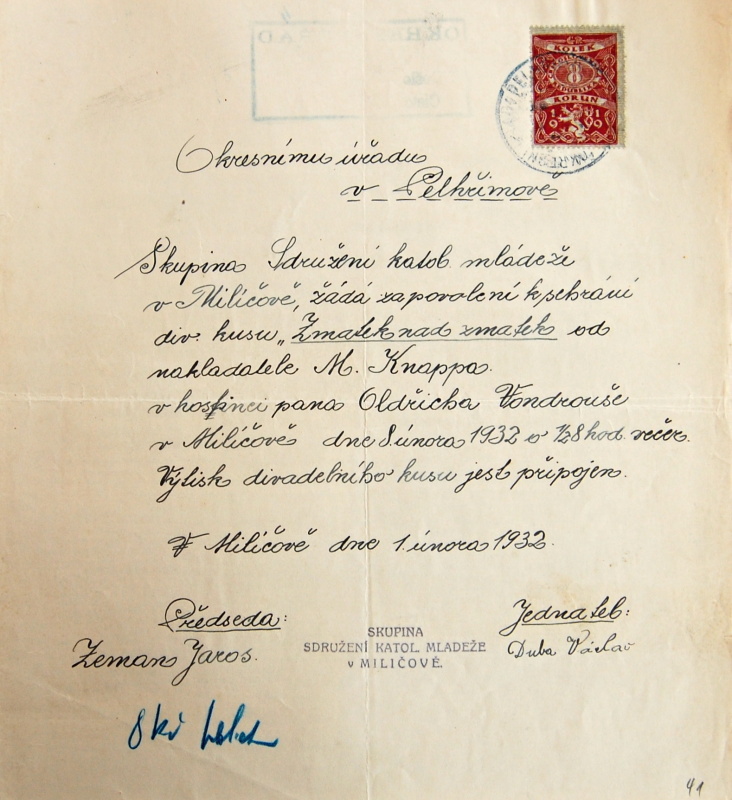 KOLEK
8
KORUN
1919
Okresnímu úřadu
v Pelhřimově
Skupina Sdružení katob. mládeže
v Miličově, žádá za povolení k sehrání
div. kusu „Zmatek nad zmatek od
nakladatele M. Knappa.
v hostinci pana Oldřicha Vondrouše
v Miličově dne 8. února 1932 o ½8 hod. večer.
Výtisk divadelního kusu jest připojen.
V Miličově dne 1. února 1932.
Předseda:
Jednatel:
Zeman Jaros.
SKUPINA
SDRUŽENÍ KATOL. MLADEŽE
v MILIČOVĚ.
Duba Václav
8 Kč
41